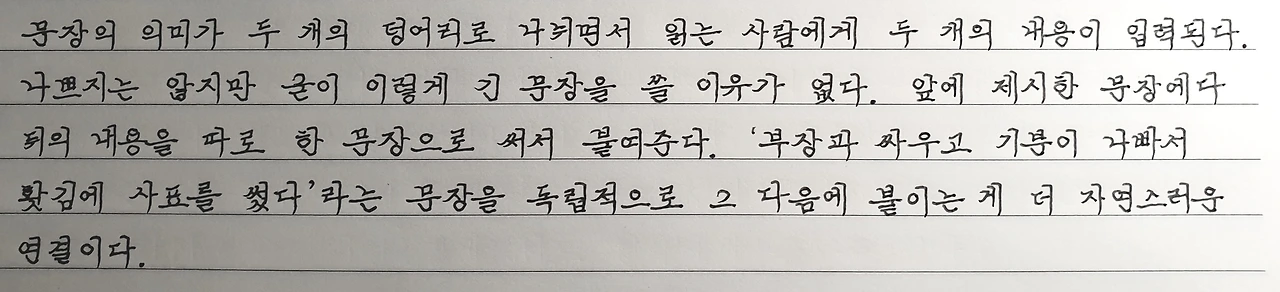 문장의 의미가 두 개의 덩어리로 나뉘면서 읽는 사람에게 두 개의 내용이 입력된다.
나쁘지는 않지만 굳이 이렇게 긴 문장을 쓸 이유가 없다. 앞에 제시한 문장에다
뒤의 내용을 따로 한 문장으로 써서 붙여준다. '부장과 싸우고 기분이 나빠서
홧김에 사표를 썼다'라는 문장을 독립적으로 그 다음에 붙이는 게 더 자연스러운
연결이다.